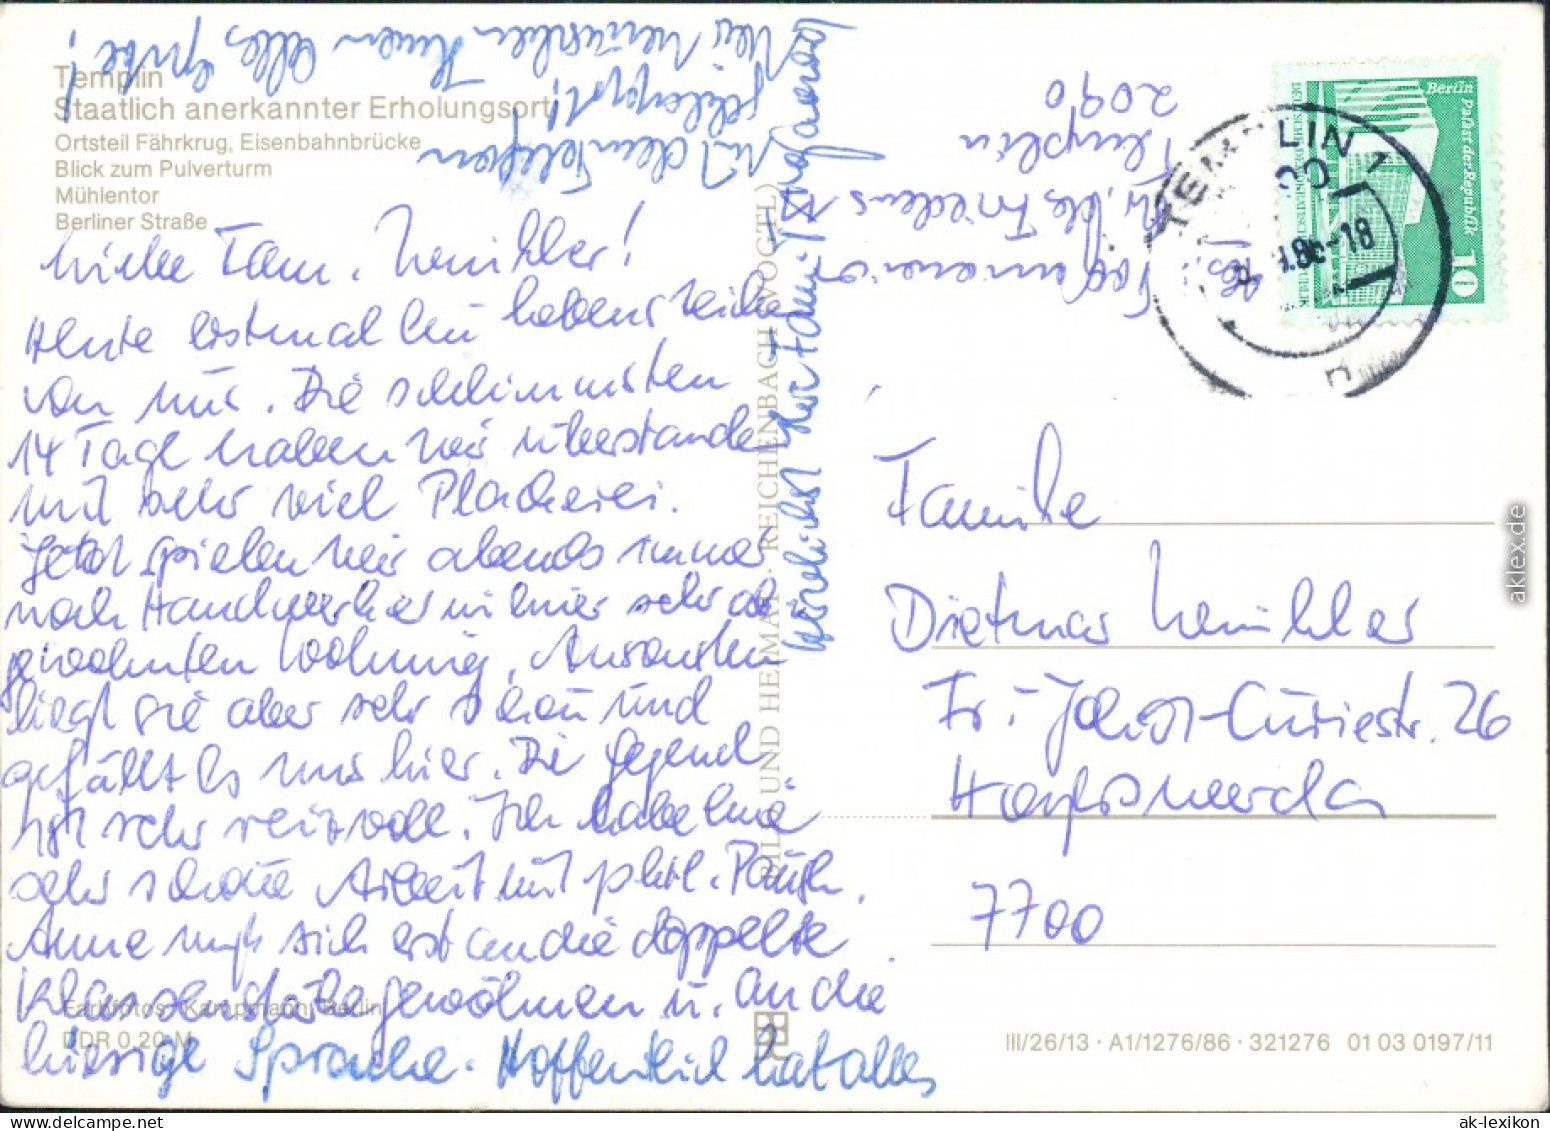 Templin
Staatlich anerkannter Erholungsort
Ortsteil Fährkrug, Eisenbahnbrücke
Blick zum Pulverturm
Mühlentor
Berliner Straße
Liebe Fam. Winkler!
Heute erstmal ein Lebenszeichen
von uns. Die schlimmsten
14 Tage haben wir überstanden
mit sehr viel Plackerei.
Jetzt spielen wir abends immer
noch Handwerker in einer sehr ab
gewohnten Wohnung. Ansonsten
liegt sie aber sehr schön und
gefällt es uns hier. Die Gegend
ist sehr reizvoll. Ich habe eine
sehr schöne Arbeit mit phil.
Anne muß sich erst an die doppelte
Klassenstärke gewöhnen u. an die
hiesige Sprache. Hoffentlich hat alles
mit dem Telefon
geklappt!
Wir wünschen Ihnen alles Gute!
Abs.:
Str. des Friedens
Templin
2090
BILD UND HEIMAT · REICHENBACH (VOGTL)
TEMPLIN 1
Berlin Palast der Republik
10
Familie
Dietmar Winkler
Fr.-Joliot-Curiestr. 26
Hoyerswerda
7700
Farbfotos: Kampmann, Berlin
DDR 0,20 M
III/26/13 · A1/1276/86 · 321276 01 03 0197/11
aklex.de
ak-lexikon
www.delcampe.net